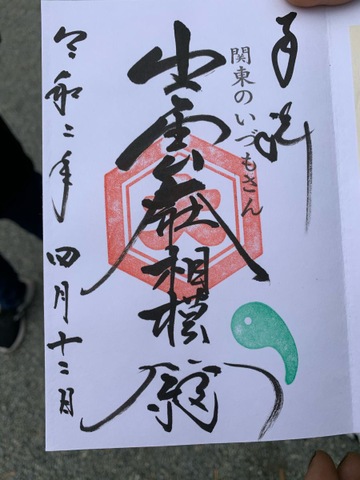 奉拝
関東のいづもさん
出雲大社相模分祠
令和二年四月十二日